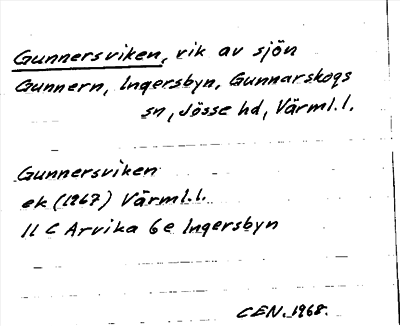 Gunnersviken, vik av sjön
Gunnern, Ingersbyn, Gunnarskogs
sn, Jösse hd, Värml.l.
Gunnersviken
ek (1967) Värml.l.
11 C Arvika 6e Ingersbyn
CEN. 1968.